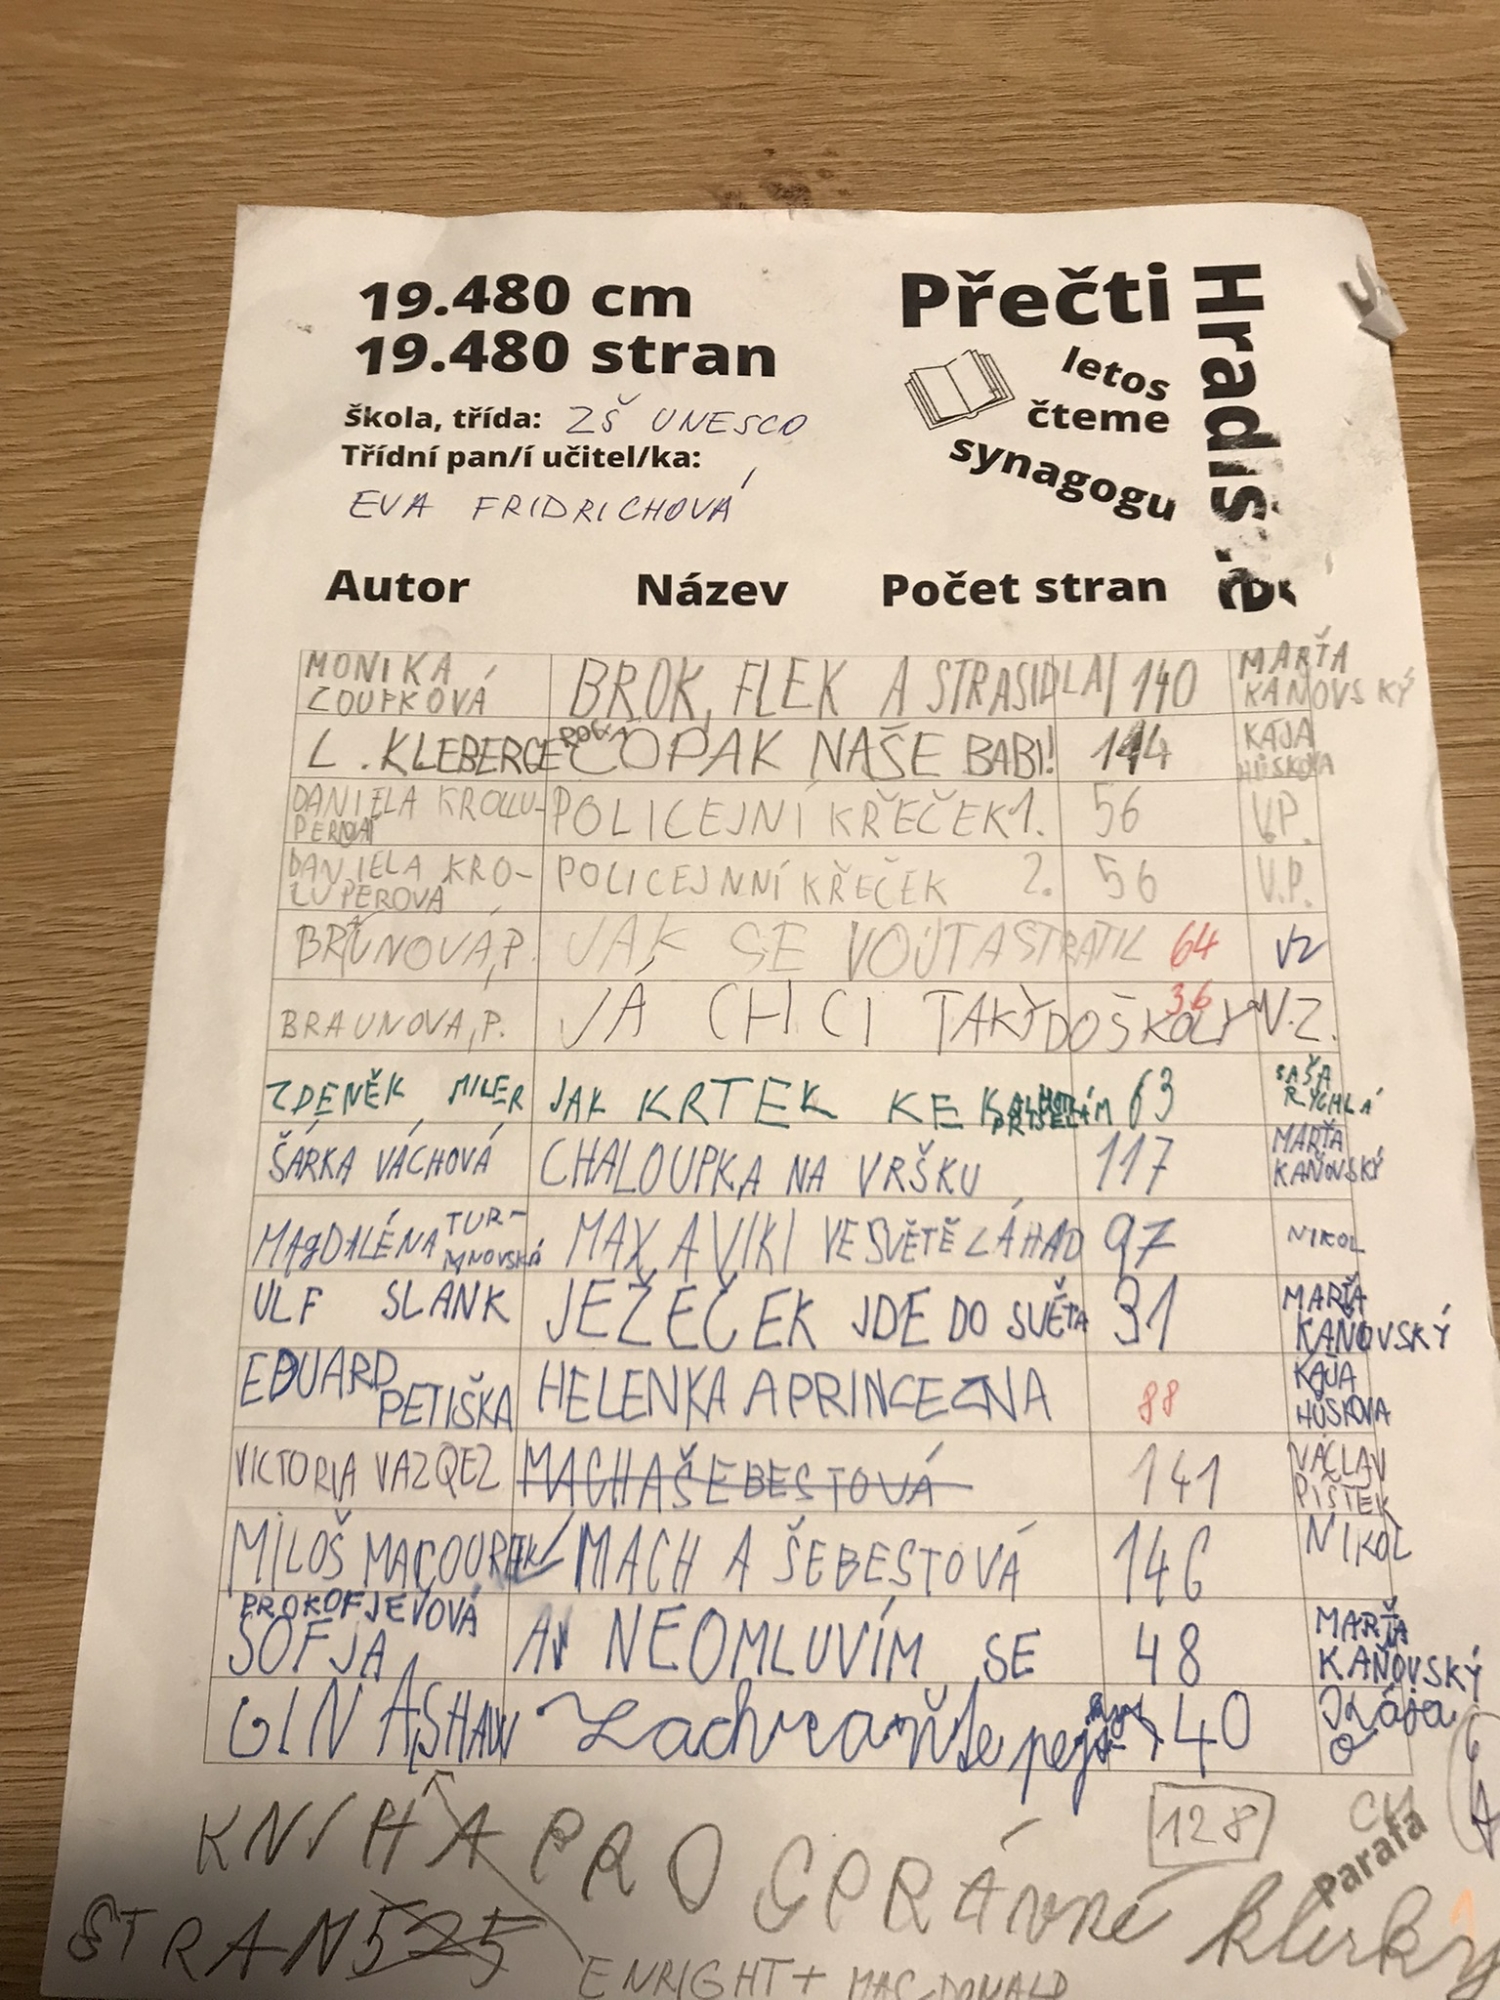 19.480 cm
19.480 stran
škola, třída: ZŠ UNESCO
Třídní pan/í učitel/ka:
EVA FRIDRICHOVÁ
Přečti
Hradiš
letos
čteme
synagogu
Autor Název Počet stran
MONIKA ZOUPKOVÁ BROK, FLEK A STRASIDLA 140 MARŤA KAŇOVSKÝ
L. KLEBERGE COPAK NAŠE BABI! 144 KAJA HŮSKOVA
DANIELA KROLU- POLICEJNÍ KŘEČEK 1. 56 V.P.
DANIELA KRO-LUPEROVÁ POLICEJNNÍ KŘEČEK 2. 56 V.P.
BRAUNOVÁ, P. JAK SE VOJTA STRATIL 64 VZ
BRAUNOVA, P. JÁ CHCI TAKÝ DO ŠKOLY 36 V.Z.
ZDENĚK MILER JAK KRTEK KE KALHOTKÁM PŘIŠEL 63 SAŠA RYCHLÁ
ŠÁRKA VÁCHOVÁ CHALOUPKA NA VRŠKU 117 MARŤA KAŇOVSKÝ
MAgDALÉNA TUR- MAX A VIKI VE SVĚTĚ ZÁHAD 97 NIKOL
ULF SLANK JEŽEČEK JDE DO SVĚTA 31 MARŤA KAŇOVSKÝ
EDUARD PETIŠKA HELENKA A PRINCEZNA 88 KAJA HŮSKOVA
VICTORIA VAZQEZ MACH A ŠEBESTOVÁ 141 VÁCLAV PIŠTEK
MILOŠ MACOUREK MACH A ŠEBESTOVÁ 146 NIKOL
PROKOFJEVOVÁ SOFJA NEOMLUVÍM SE 48 MARŤA KAŇOVSKÝ
GIN ASHAW Zachraňte 40 Kája
128
Parafa
KNIHA PRO SPRÁVNÉ klurky
STRAN 525
ENRIGHT + MACDONALD